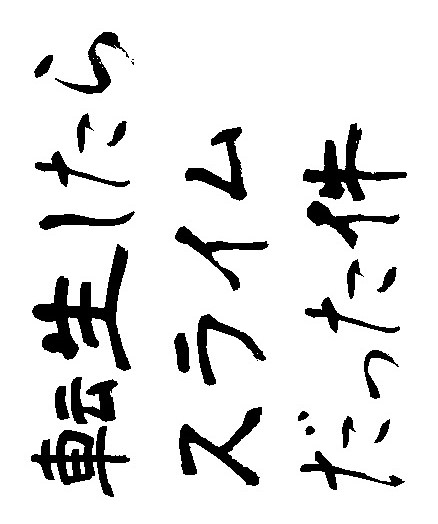 転生したら
スライム
だった件